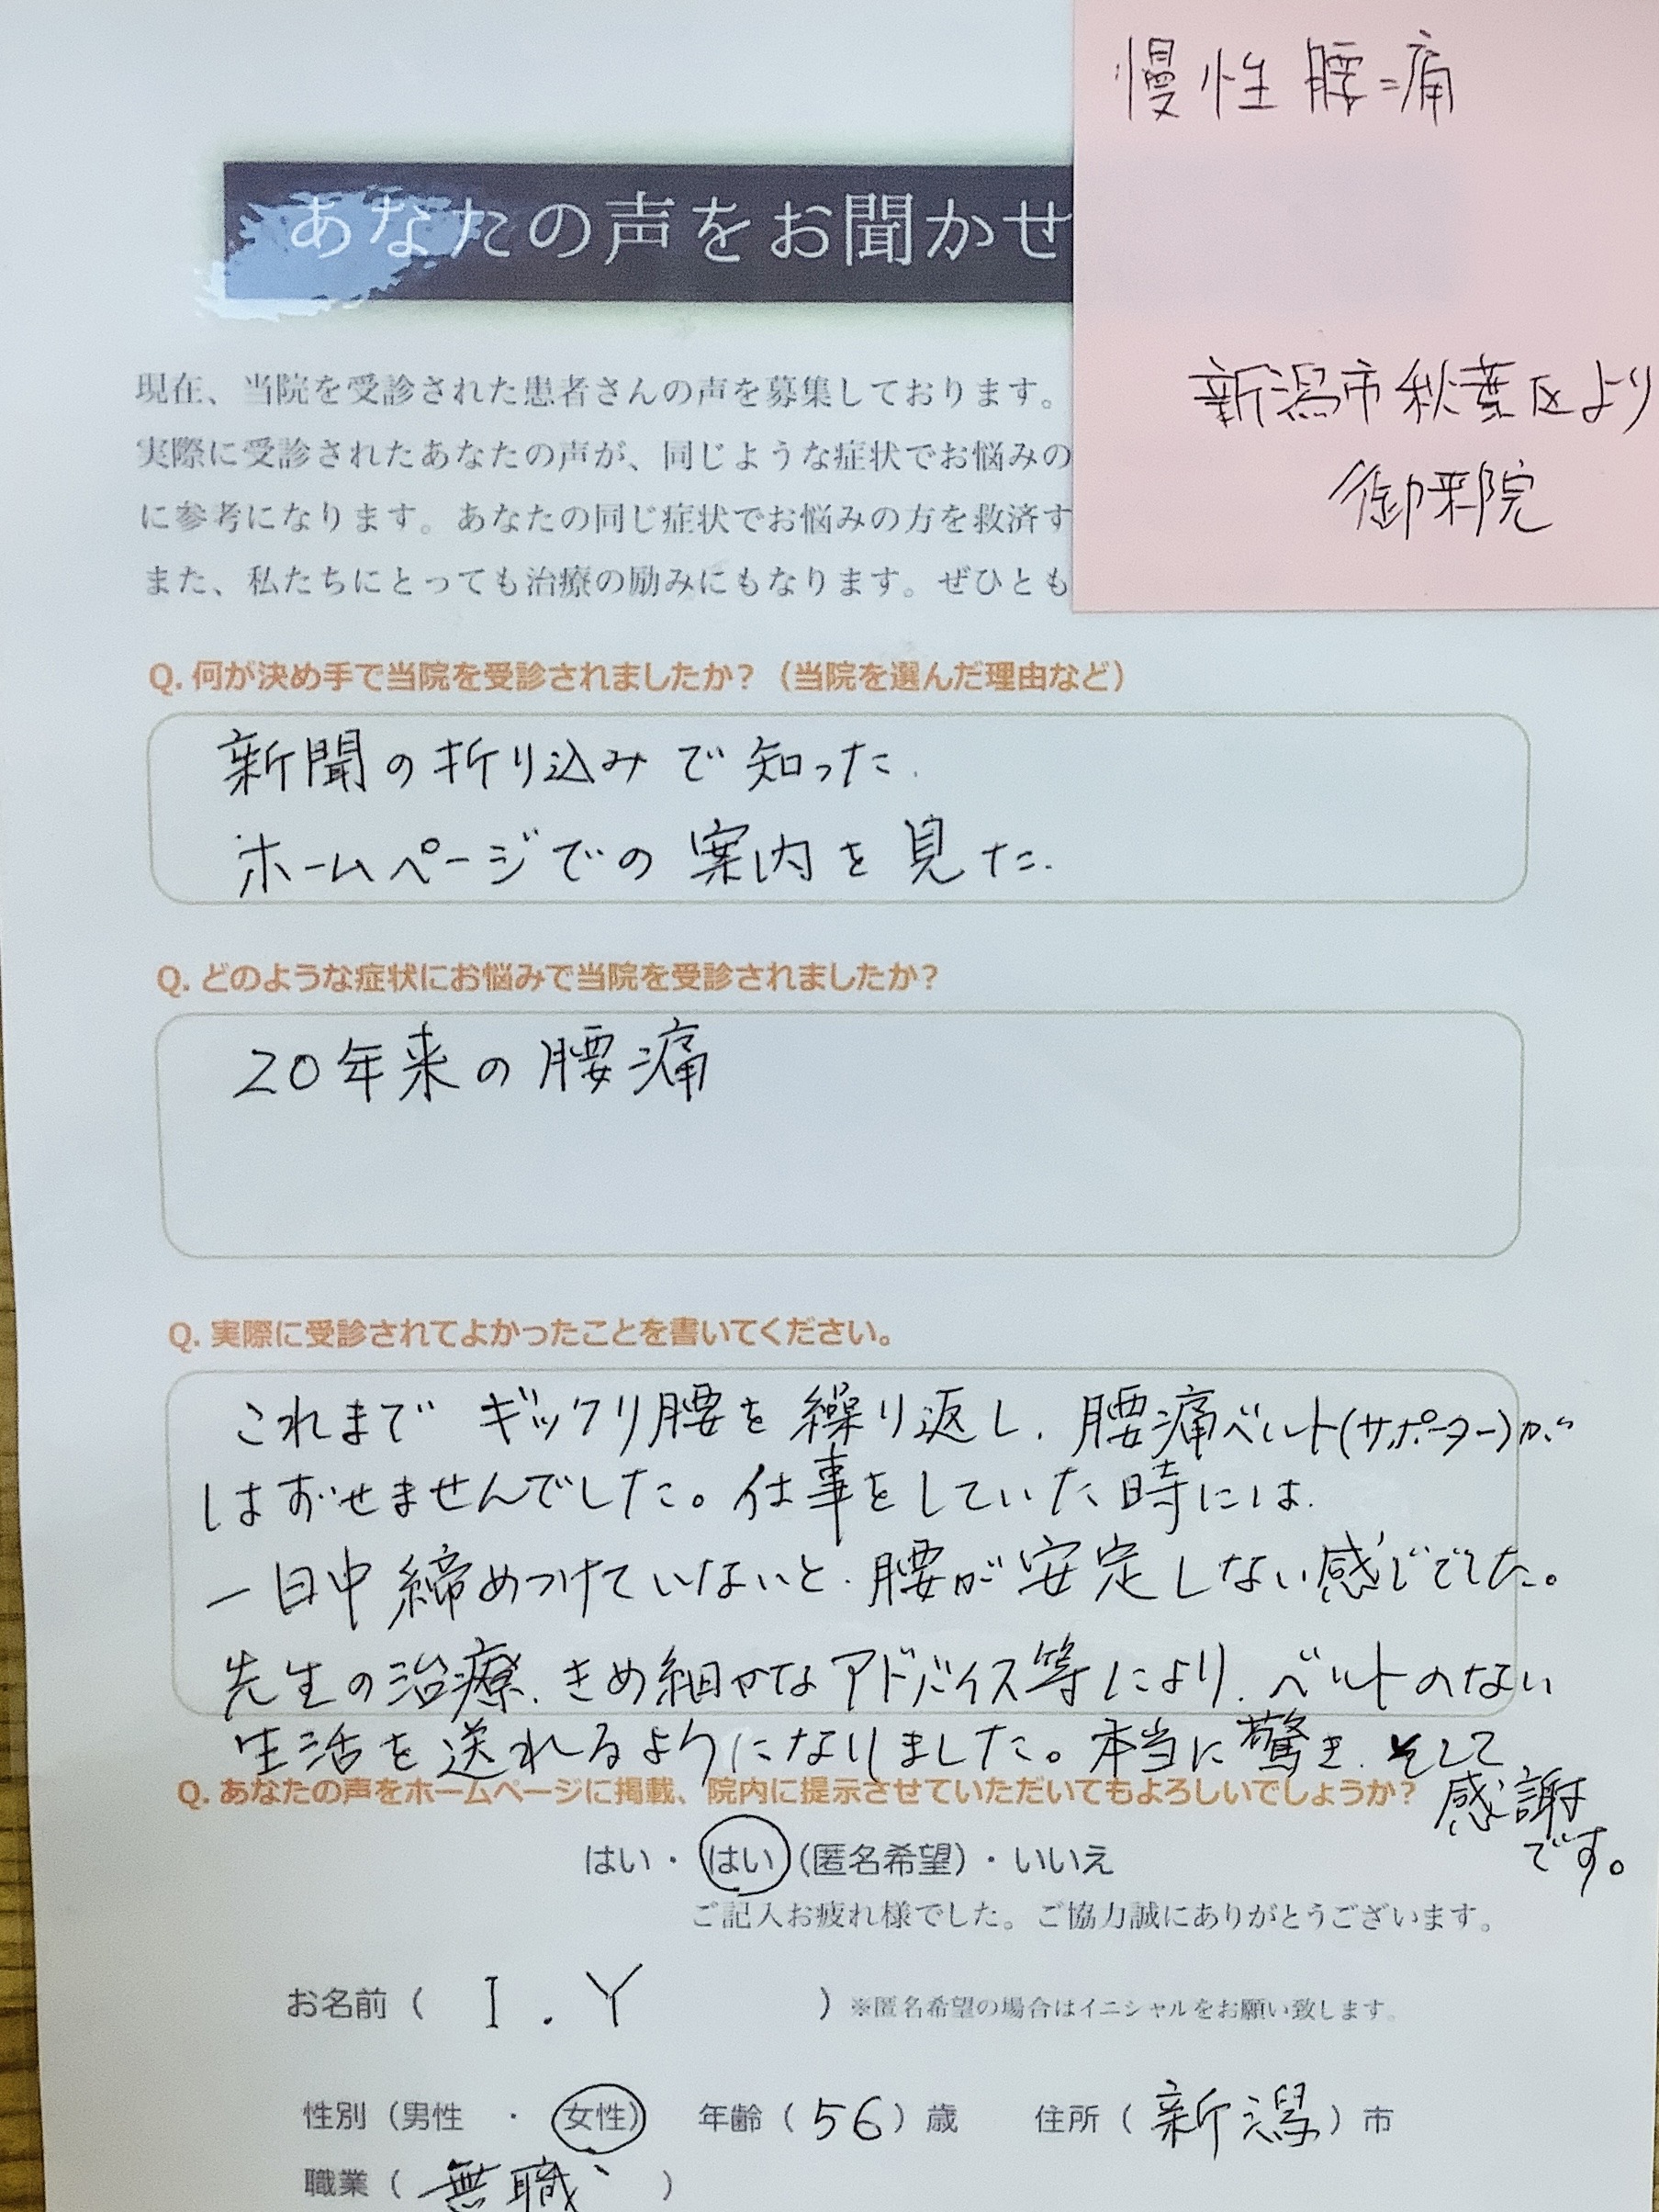 慢性腰痛
新潟市秋葉区より
御来院
あなたの声をお聞かせ
現在、当院を受診された患者さんの声を募集しております。
実際に受診されたあなたの声が、同じような症状でお悩みの
に参考になります。あなたの同じ症状でお悩みの方を救済す
また、私たちにとっても治療の励みにもなります。ぜひとも
Q. 何が決め手で当院を受診されましたか？（当院を選んだ理由など）
新聞の折り込みで知った.
ホームページでの案内を見た.
Q. どのような症状にお悩みで当院を受診されましたか？
20年来の腰痛
Q. 実際に受診されてよかったことを書いてください。
これまで ギックリ腰を繰り返し、腰痛ベルト(サポーター)が
はずせませんでした。仕事をしていた時には、
一日中締めつけていないと、腰が安定しない感じでした。
先生の治療、きめ細かなアドバイス等により、ベルトのない
生活を送れるようになりました。本当に驚き、そして
感謝
です。
Q. あなたの声をホームページに掲載、院内に提示させていただいてもよろしいでしょうか？
はい・はい（匿名希望）・いいえ
ご記入お疲れ様でした。ご協力誠にありがとうございます。
お名前（ I . Y ）※匿名希望の場合はイニシャルをお願い致します。
性別（男性 ・ 女性） 年齢（56）歳 住所（新潟）市
職業（無職）